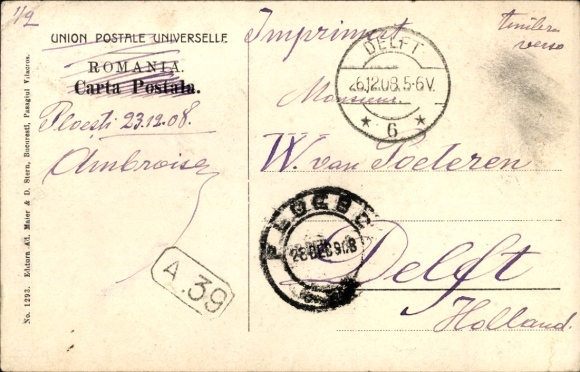 1/2
UNION POSTALE UNIVERSELLE
ROMANIA.
Carta Postala.
Ploesti 23.12.08.
Ambroise
Imprimat
timbre
verso
DELFT
26.12.08.5-6V.
* 6 *
Monsieur.
W. van Poederen
Delft
Holland.
26 DEC 908
A.39
No. 1293. Editura Ad. Maier & D. Stern, Bucuresti, Pasagiul Vilacros.